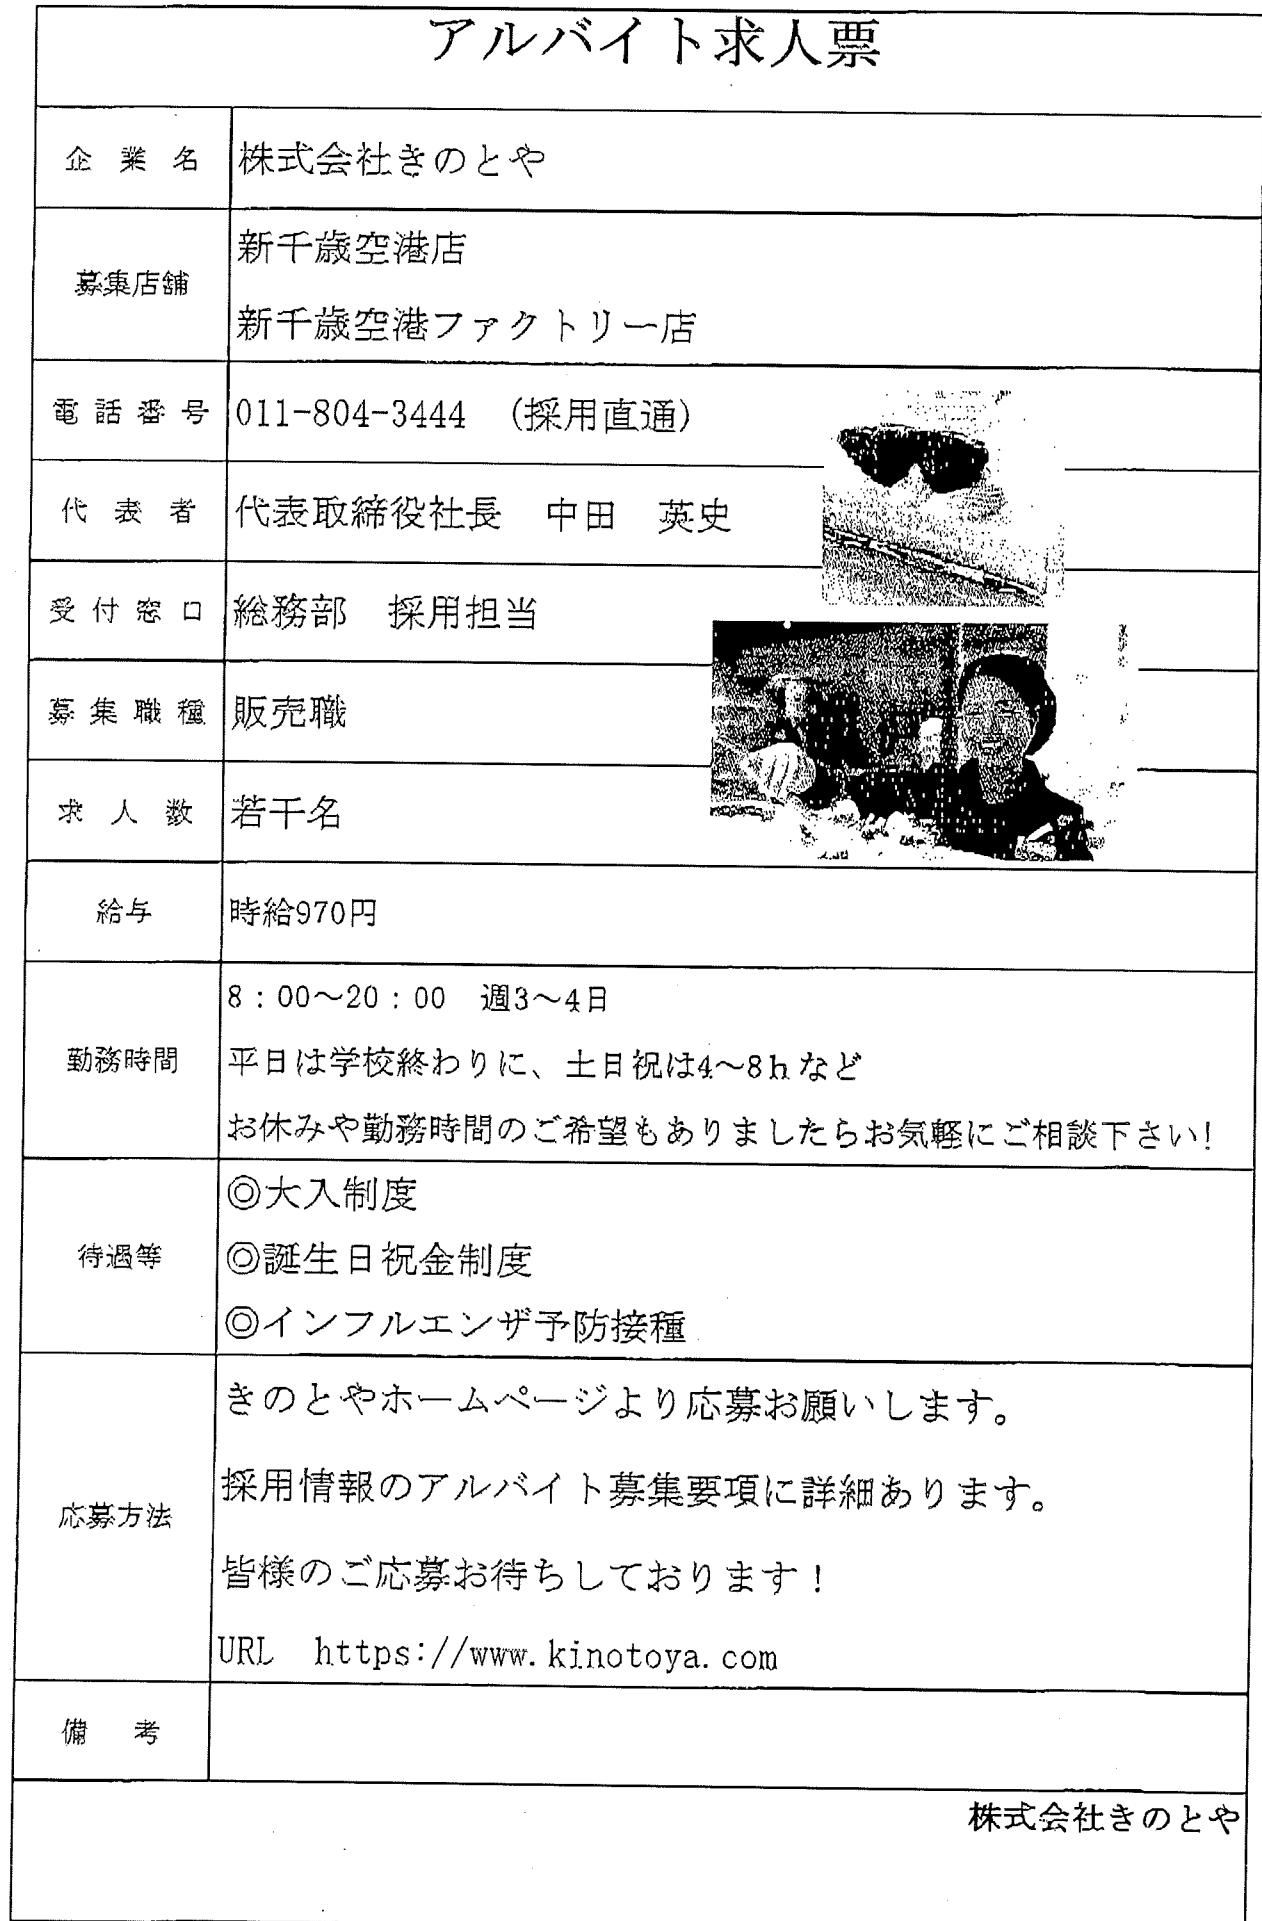 アルバイト求人票
企業名 株式会社きのとや
募集店舗
新千歳空港店
新千歳空港ファクトリー店
電話番号 011-804-3444 (採用直通)
代表者 代表取締役社長 中田 英史
受付窓口 総務部 採用担当
募集職種 販売職
求人数 若干名
給与 時給970円
勤務時間
8:00~20:00 週3~4日
平日は学校終わりに、土日祝は4~8hなど
お休みや勤務時間のご希望もありましたらお気軽にご相談下さい!
待遇等
◎大入制度
◎誕生日祝金制度
◎インフルエンザ予防接種
応募方法
きのとやホームページより応募お願いします。
採用情報のアルバイト募集要項に詳細あります。
皆様のご応募お待ちしております!
URL https://www.kinotoya.com
備考
株式会社きのとや